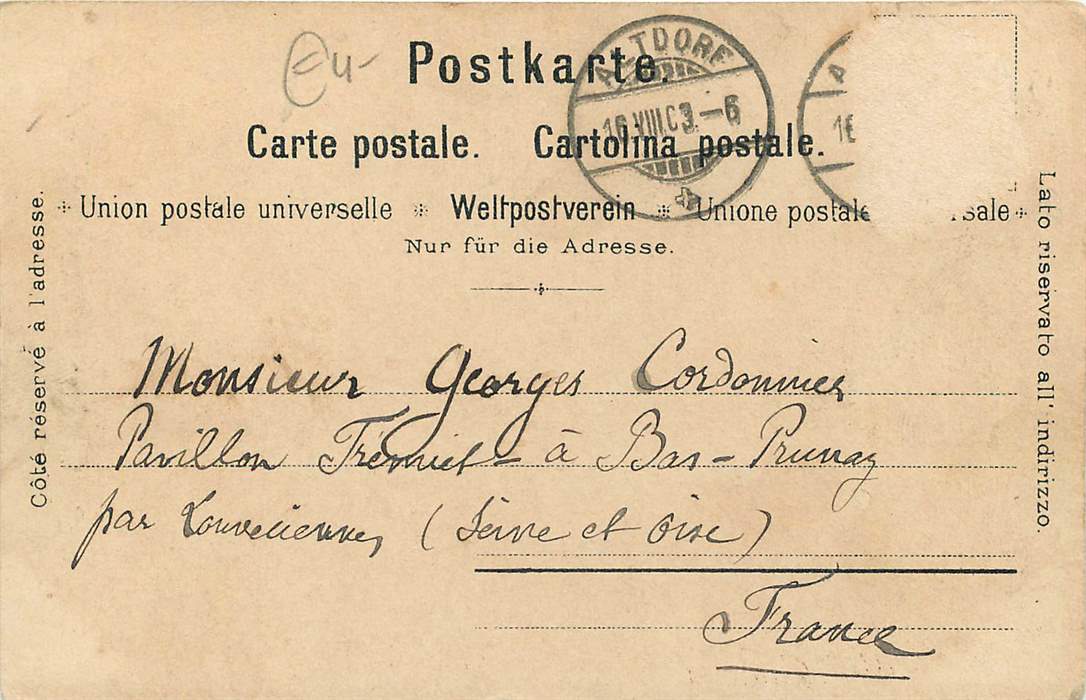 Postkarte.
Carte postale. Cartolina postale.
Union postale universelle * Weltpostverein * Unione postale
Nur für die Adresse.
Côté réservé à l'adresse.
Lato riservato all' indirizzo.
ALTDORF
16.VIII.03.–6
A
16
Monsieur Georges Cordonnier
Pavillon à Bas-Prunay
par Louveciennes (Seine et Oise)
France